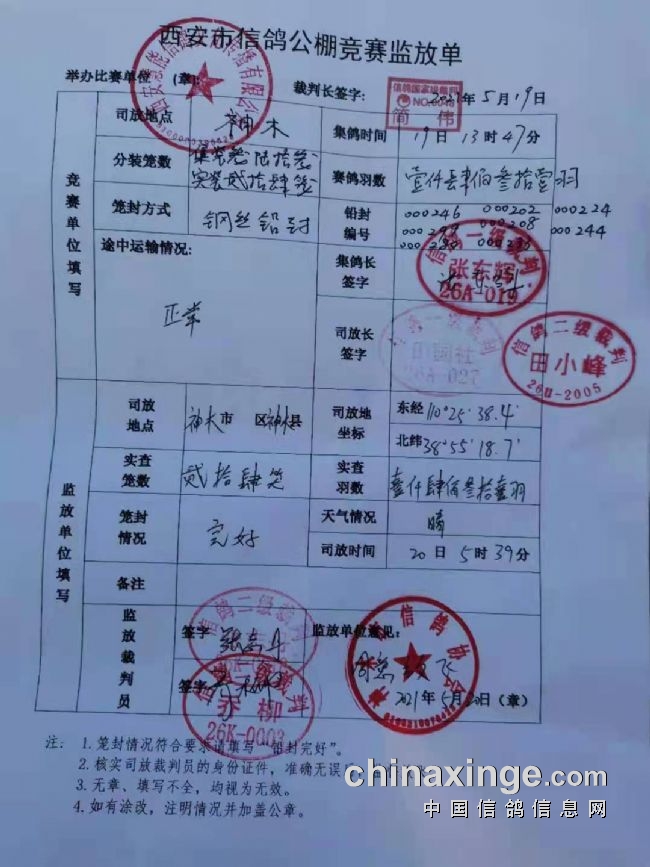 西安市信鸽公棚竞赛监放单
举办比赛单位 (章):
裁判长签字:
信鸽国家级裁判
NO.0046
简伟
2021年5月19日
竞赛单位填写
司放地点 神木
集鸽时间 19日13时47分
分装笼数
实装贰拾肆笼
赛鸽羽数 壹仟肆佰叁拾壹羽
笼封方式 钢丝铅封
铅封编号
000246 000202 000224
000208 000244
途中运输情况: 正常
集鸽长签字
信鸽二级裁判
张东辉
26A-019
司放长签字
田国社
26A-027
信鸽二级裁判
田小峰
26U-2005
监放单位填写
司放地点 神木市 区神木县
司放地坐标
东经110°25′38.4′
北纬38°55′18.7′
实查笼数 贰拾肆笼
实查羽数 壹仟肆佰叁拾壹羽
笼封情况 完好
天气情况 晴
司放时间 20日5时39分
备注
监放裁判员
签字
信鸽二级裁判
签字
乔柳
26K-0003
监放单位意见:
信鸽协会
2021年5月20日(章)
注: 1.笼封情况符合要求请填写“铅封完好”。
2.核实司放裁判员的身份证件,准确无误
3.无章、填写不全,均视为无效。
4.如有涂改,注明情况并加盖公章。
chinaxinge.com
中国信鸽信息网